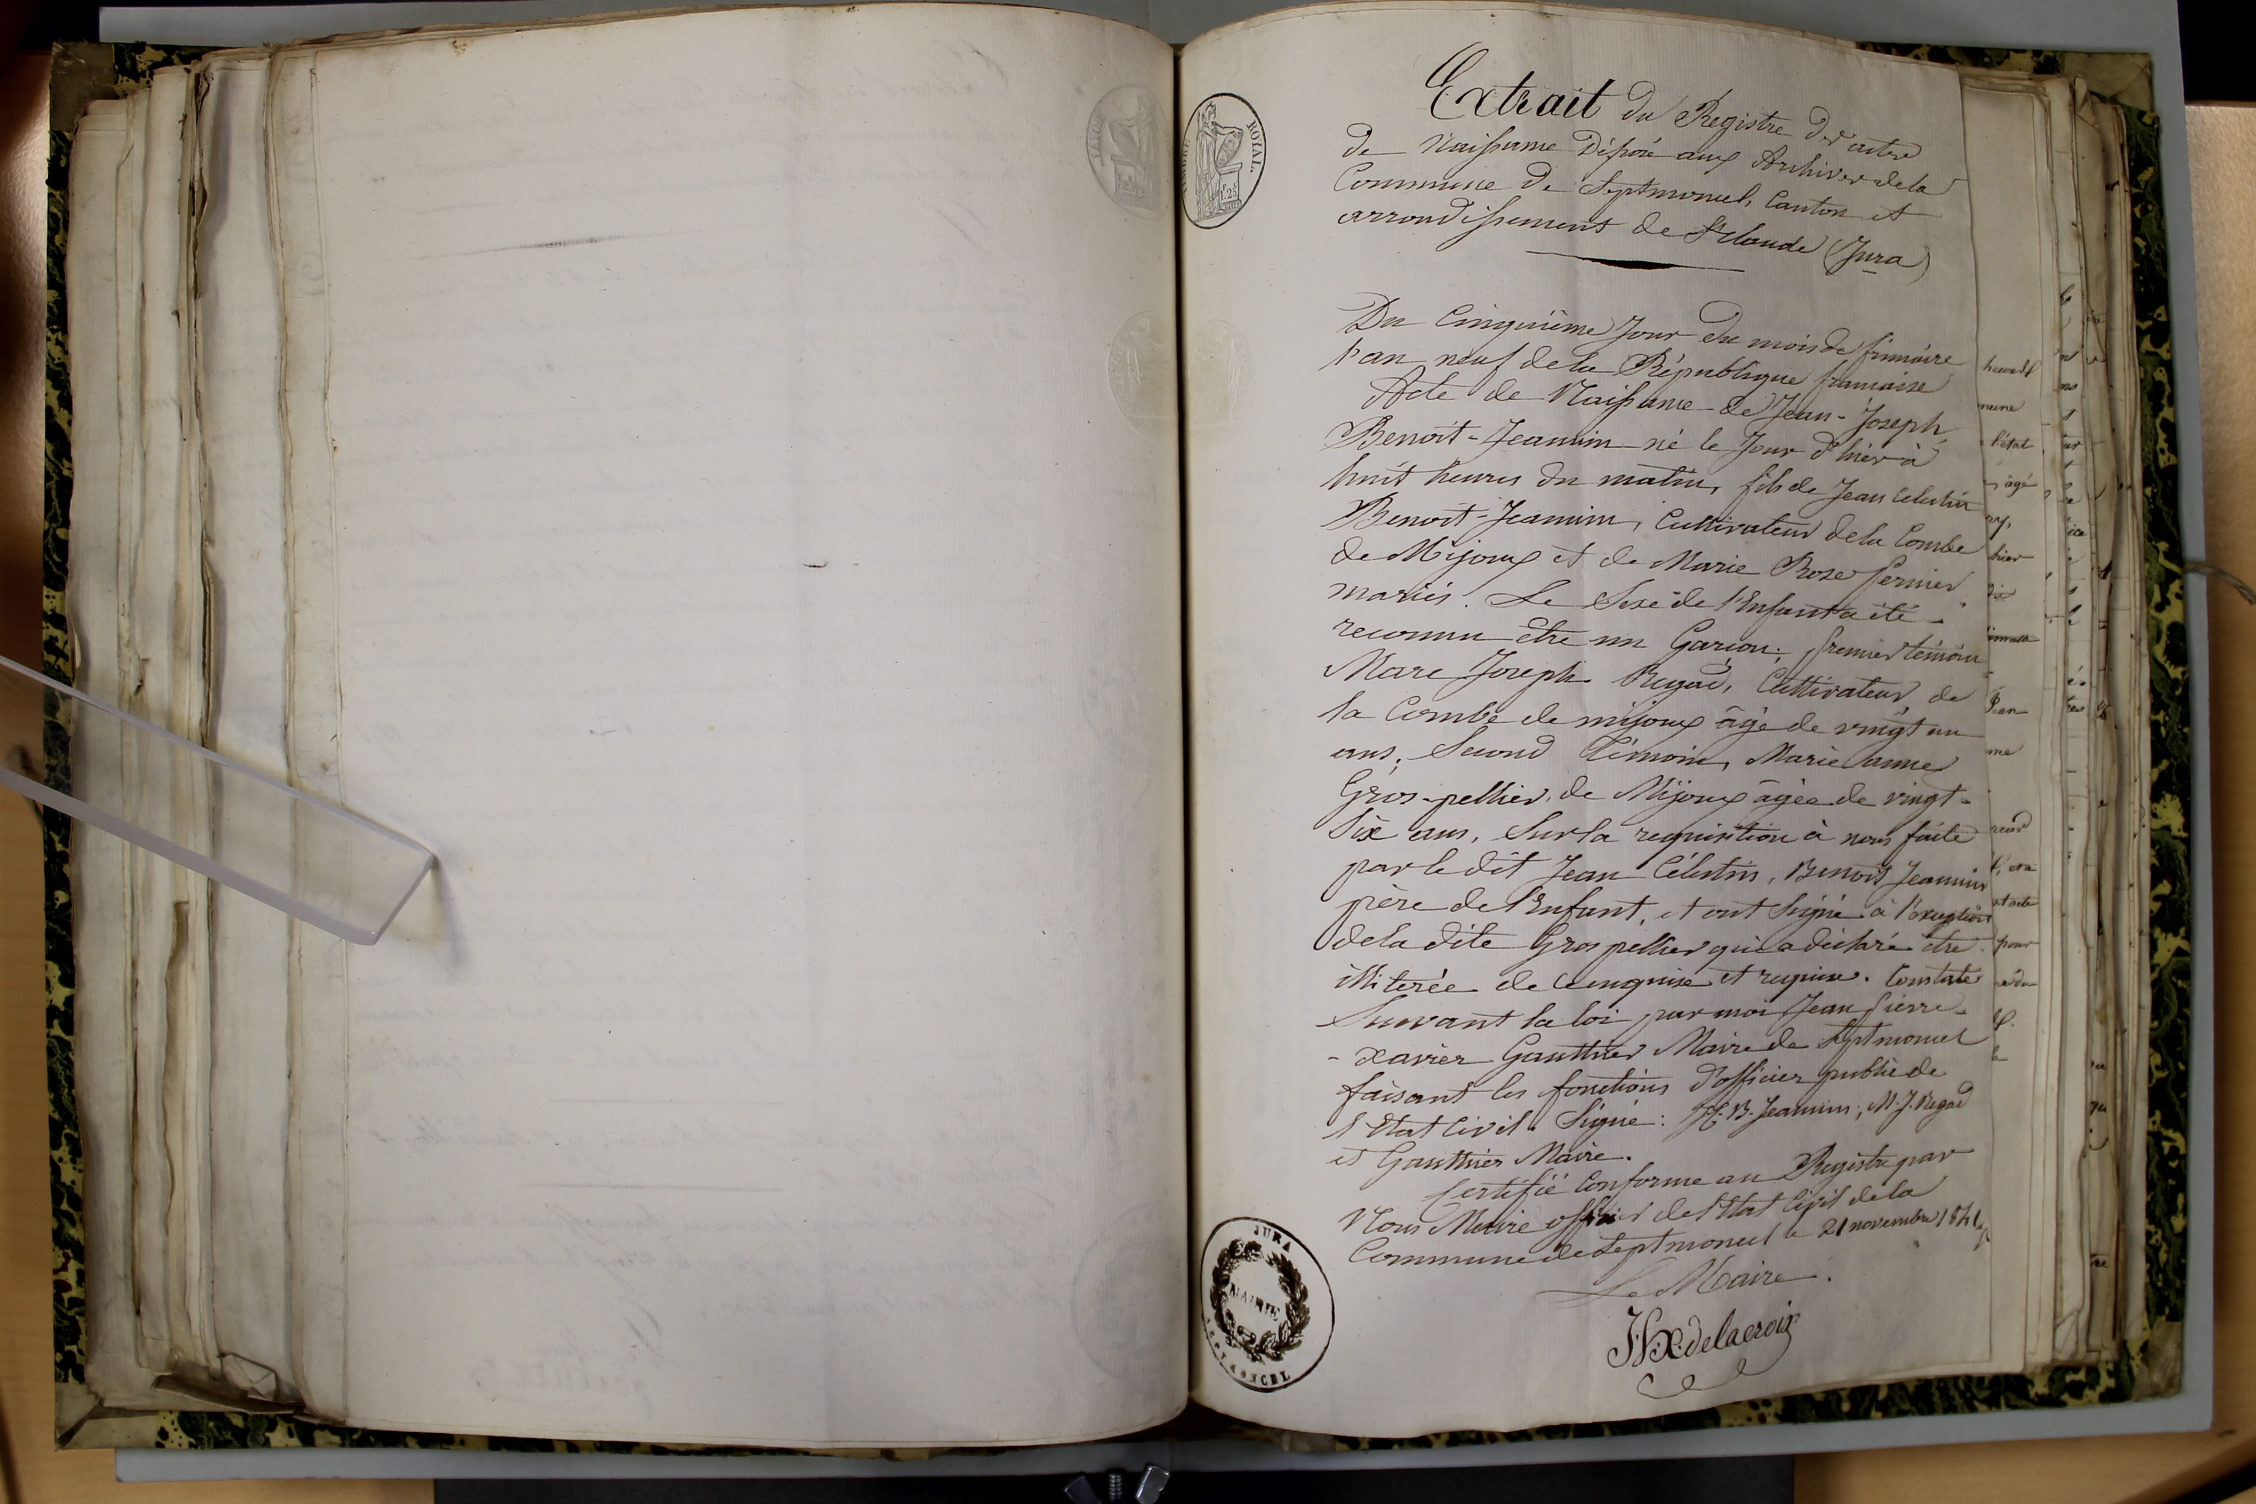 Extrait du Registre des actes
de Naissance Déposé aux Archives de la
Commune de Septmoncel, Canton et
arrondissement de St Claude (Jura)
TIMBRE ROYAL
Du Cinquième Jour du mois de frimaire
l'an neuf de la République francaise
Acte de Naissance de Jean-Joseph
Benoit-Jeannin né le Jour d'hier à
huit heures du matin, fils de Jean Celestin
Benoit-Jeannin, Cultivateur de la Combe
de Mijoux et de Marie Rose Pernier
mariés. Le Sexe de l'Enfant a été
reconnu être un Garcon; premier témoin
Marc Joseph Regad, Cultivateur, de
la Combe de mijoux âgé de vingt un
ans; Second Témoin, Marie anne
Gros-pellier, de Mijoux âgée de vingt-
Six ans, Sur la requisition à nous faite
par le dit Jean Célestin, Benoit Jeannin
père de l'Enfant, et ont Signé à l'exception
de la dite Grospellier qui a déclaré être
illiterée de ce enquise et requise. Constaté
Suivant la loi par moi Jean pierre
- xavier Gauthier Maire de Septmoncel
faisant les fonctions d'officier public de
l'Etat Civil. Signé: B. Jeannin; M. J. Regad
et Gauthier Maire.
Certifié Conforme au Registre par
Nous Maire officier de l'Etat Civil de la
Commune de Septmoncel le 21 novembre 1841
Le Maire.
delacroix
JURA
MAIRIE
SEPTMONCEL